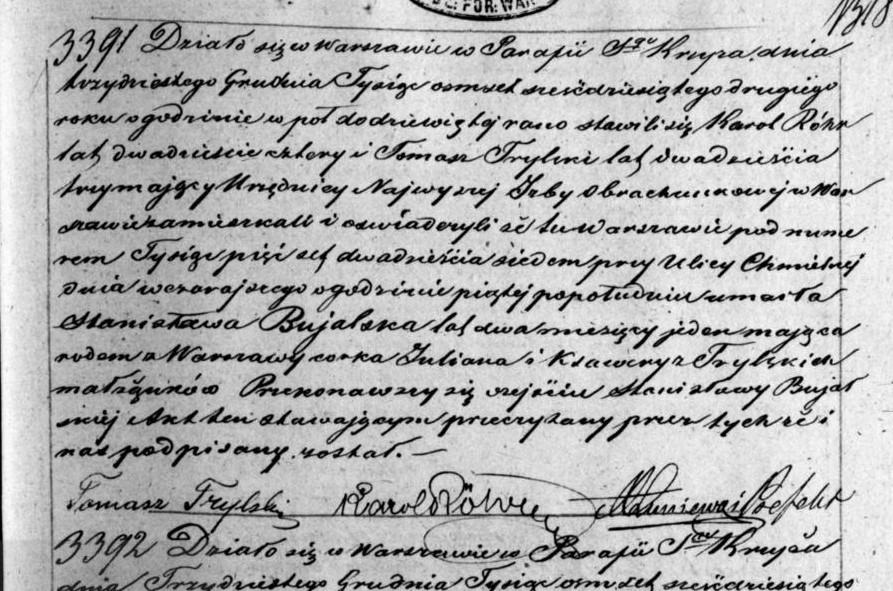 DE. FOR. WAR
1318
3391 Działo się w Warszawie w Parafii Sgo Krzyża, dnia
trzydziestego Grudnia Tysiąc osmset sześcdziesiątego drugiego
roku o godzinie w pół do dziewiątej rano stawili się Karol Röhr
lat dwadzieście cztery i Tomasz Trylski lat dwadzieścia
trzy mający Urzędnicy Najwyszej Izby Obrachunkowej w War
szawie zamieszkali i oświadczyli że tu w Warszawie pod nume
rem Tysiąc pięćset dwadzieścia siedem przy Ulicy Chmielnej
dnia wczorajszego o godzinie piątej popołudniu umarła
Stanisława Bujalska lat dwa miesięcy jeden mająca
rodem z Warszawy corka Juliana i Ksawery z Trylskich
małżąnków Przekonawszy się o zejściu Stanisławy Bujal
skiej Akt ten stawającym przeczytany przez tychże i
nas podpisany został. —
Tomasz Trylski Karol Röhr
3392 Działo się w Warszawie w Parafii Sgo Krzyża
dnia Trzydziestego Grudnia Tysiąc osmset sześcdziesiątego